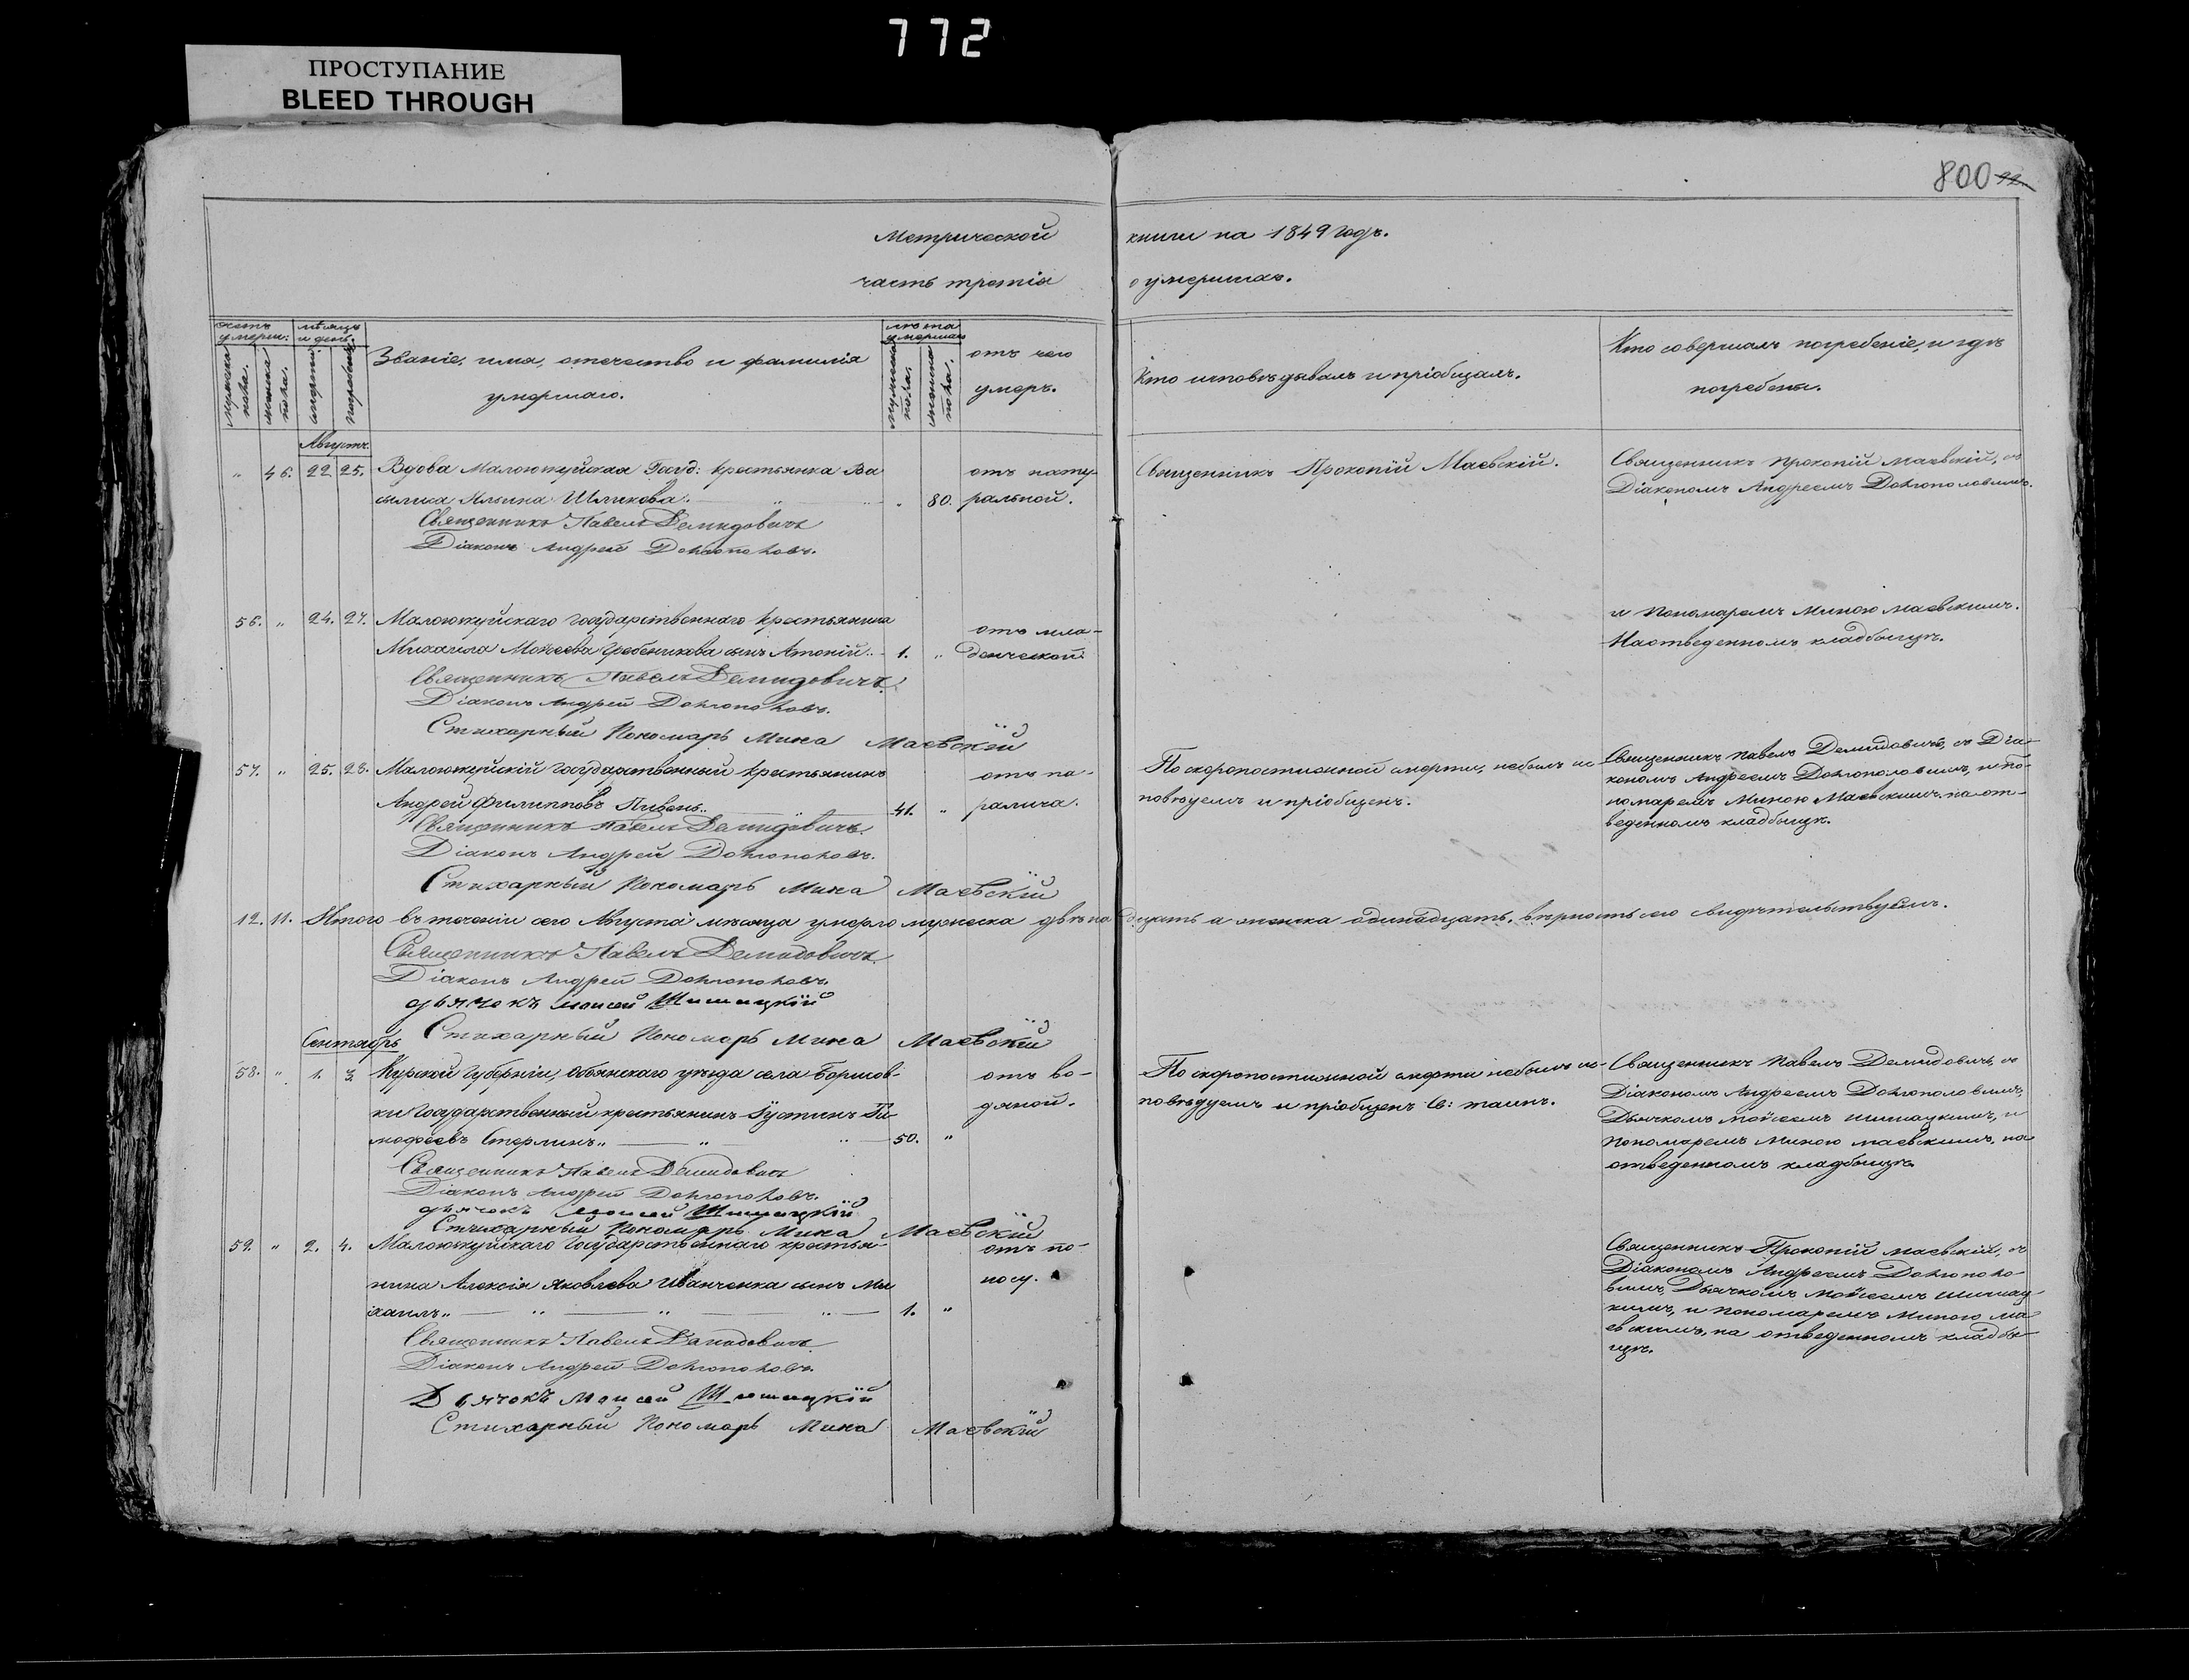 772
ПРОСТУПАНИЕ
BLEED THROUGH
800
Метрической книги на 1849 годъ.
часть третія о умершихъ.
счетъ умерш:
мужеска пола.
женска пола.
мѣсяцъ и день.
смерти
погребенія
Званіе, имя, отечество и фамилія
умершаго.
лѣта умершаго
мужеска пола.
женска пола.
отъ чего
умеръ.
Кто исповѣдывалъ и пріобщалъ.
Кто совершалъ погребеніе, и гдѣ
погребены.
Августъ
" 46. 22. 25. Вдова Малоюжуйская Госуд: крестьянка Ва
силиса Ильина Шликова. " 80.
отъ нату-
ральной.
Священникъ Прокопій Маевскій.
Священникъ Прокопій Маевскій, съ
Діакономъ Андреемъ Долгополовымъ.
Священникъ Павелъ Демидовичъ
Діаконъ Андрей Долгополовъ.
56. " 24. 27. Малоюжуйскаго Государственнаго крестьянина
Михаила Моисеева Гребеникова сынъ Антоній. 1. "
отъ мла-
денческой
и Пономаремъ Миною Маевскимъ.
На отведенномъ кладбищѣ.
Священникъ Павелъ Демидовичъ
Діаконъ Андрей Долгополовъ.
Стихарный Пономарь Мина Маевскій
57. " 25. 28. Малоюжуйскій Государственный крестьянинъ
Андрей Филипповъ Пивень. 41. "
отъ па-
ралича.
По скоропостижной смерти, небылъ ис-
повѣдуемъ и пріобщенъ.
Священникъ Павелъ Демидовичъ, съ Діа-
кономъ Андреемъ Долгополовымъ, и по-
номаремъ Миною Маевскимъ на от-
веденномъ кладбищѣ.
Священникъ Павелъ Демидовичъ.
Діаконъ Андрей Долгополовъ.
Стихарный Пономарь Мина Маевскій
12. 11. Итого въ теченіи сего Августа мѣсяца умерло мужеска двѣнадцать а женска одинадцать. вѣрность сего свидѣтельствуемъ.
Священникъ Павелъ Демидовичъ
Діаконъ Андрей Долгополовъ.
дьячокъ Моисей Шишацкій
Стихарный Пономарь Мина Маевскій
Сентябрь
58. " 1. 3. Курской Губерніи, Обоянскаго уѣзда села Борисов-
ки Государственный крестьянинъ Іустинъ Ти-
мофеевъ Стерлинъ " 50. "
отъ во-
дяной.
По скоропостижной смерти небылъ ис-
повѣдуемъ и пріобщенъ Св: таинъ.
Священникъ Павелъ Демидовичъ, съ
Діакономъ Андреемъ Долгополовымъ,
Дьячкомъ Моисеемъ Шишацкимъ, и
Пономаремъ Миною Маевскимъ, на
отведенномъ кладбищѣ.
Священникъ Павелъ Демидовичъ
Діаконъ Андрей Долгополовъ.
дьячокъ Моисей Шишацкій
Стихарный Пономарь Мина Маевскій
59. " 2. 4. Малоюжуйскаго Государственнаго крестья-
нина Алексія Яковлева Иванченка сынъ Ми
хаилъ " 1. "
отъ по-
носу.
Священникъ Прокопій Маевскій, съ
Діакономъ Андреемъ Долгополо-
вымъ, Дьячкомъ Моисеемъ Шишац-
кимъ, и Пономаремъ Миною Ма-
евскимъ, на отведенномъ кладби-
щѣ.
Священникъ Павелъ Демидовичъ
Діаконъ Андрей Долгополовъ.
Дьячокъ Моисей Шишацкій
Стихарный Пономарь Мина Маевскій